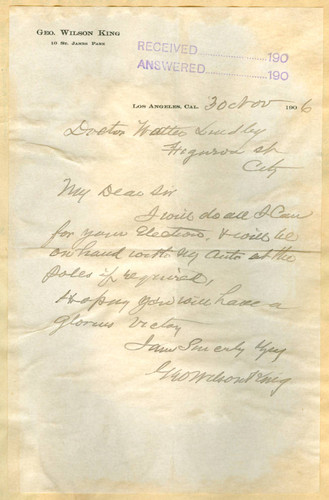 GEO. WILSON KING
10 ST. JAMES PARK
RECEIVED 190
ANSWERED 190
LOS ANGELES, CAL. 30 Nov 190 6
Doctor Walter Lindley
Figueroa st
City
My Dear Sir
I will do all I Can
for your Election, & will be
on hand with my Auto at the
Poles if required,
Hoping you will have a
glorius Victory
I am Sincerly
Geo Wilson King